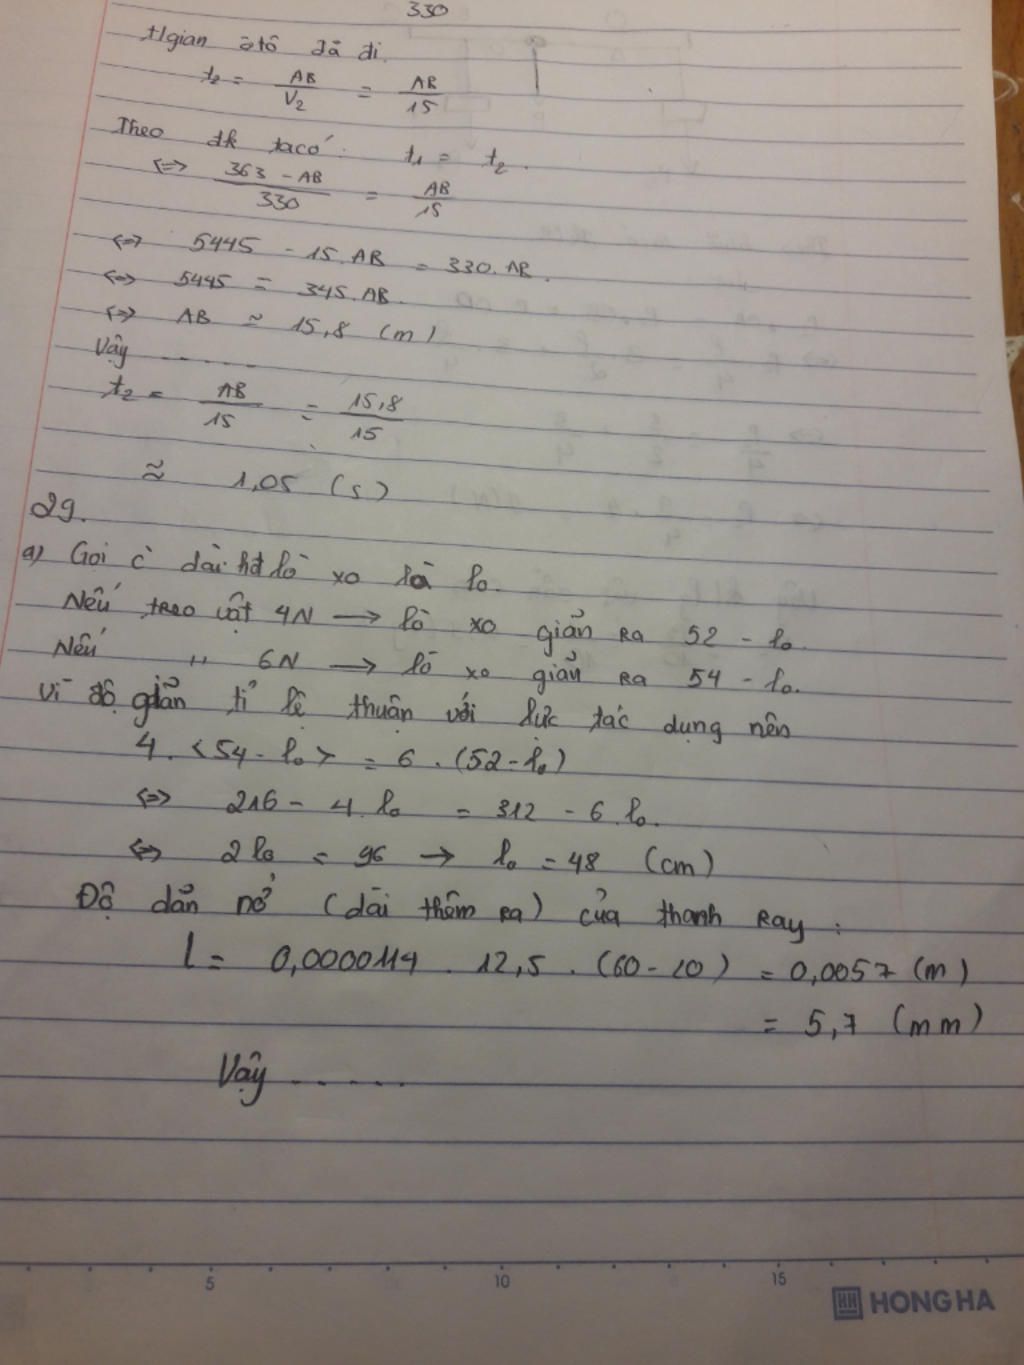 330
tgian ôtô đã đi.
t₂ = AB/V₂ = AB/15
Theo đk ta có: t₁ = t₂.
<=> 363 - AB/330 = AB/15
<=> 5445 - 15.AB = 330.AB.
<=> 5445 = 345.AB.
<=> AB ≈ 15,8 (m)
Vậy .......
t₂ = AB/15 = 15,8/15
≈ 1,05 (s)
29.
a) Gọi c dài lò xo là l₀.
Nếu treo vật 4N → lò xo giãn ra 52 - l₀.
Nếu " 6N → lò xo giãn ra 54 - l₀.
Vì độ giãn tỉ lệ thuận với lực tác dụng nên
4. <54 - l₀> = 6. (52 - l₀)
<=> 216 - 4.l₀ = 312 - 6.l₀.
<=> 2l₀ = 96 → l₀ = 48 (cm)
Độ dãn nở (dài thêm ra) của thanh Ray:
l = 0,0000114 . 12,5 . (60 - 20) = 0,0057 (m)
= 5,7 (mm)
Vậy ......
5 10 15
HH HONG HA